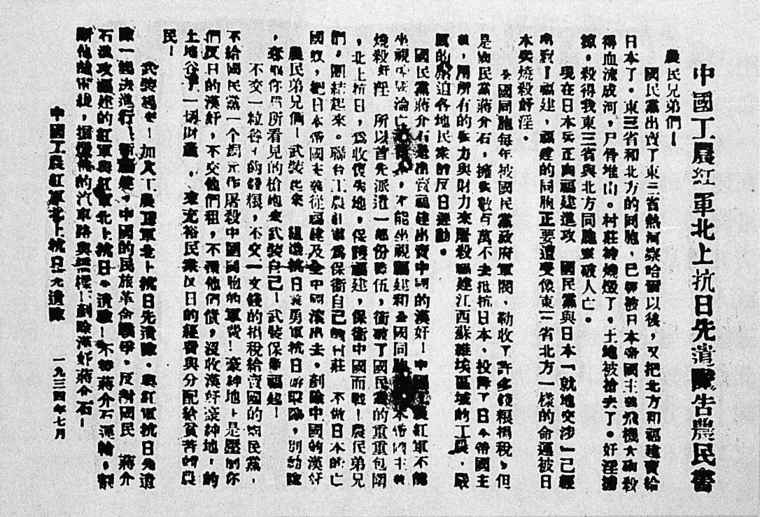 中國工農紅軍北上抗日先遣隊告農民書
農民兄弟們！
國民黨出賣了東三省熱河察哈爾以後，又把北方和福建賣給
日本了。東三省和北方的同胞，已經被日本帝國主義飛機大砲殺
得血流成河，尸骨堆山。村莊被燒燬了。土地被搶去了。奸淫擄
掠，殺得我東三省與北方同胞家破人亡。
現在日本兵正向福建進攻 國民黨與日本「就地交涉」已經
出賣了福建，福建的同胞正要遭受像東三省北方一樣的命運被日
本兵燒殺奸淫。
全國同胞每年被國民黨政府軍閥，勒收了許多錢糧捐稅，但
是國民黨蔣介石，擁兵數百萬不去抵抗日本，投降了日本帝國主
義，用所有的兵力與財力來屠殺福建江西蘇維埃區域的工農，嚴
厲的壓迫各地民眾的反日運動。
國民黨蔣介石是出賣福建出賣中國的漢奸！中國工農紅軍不能
坐視 不能坐視福建和全國同胞 帝國主義
燒殺奸淫 所以首先派遣一部份隊伍，衝破了國民黨的重重包圍
，北上抗日，為收復失地，保護福建，保衛中國而戰！農民弟兄
們，團結起來。聯合工農紅軍為保衛自己的村莊 不做日本的亡
國奴，把日本帝國主義從福建及全中國滾出去。剷除中國的漢奸
農民弟兄們！武裝起來 組織抗日義勇軍抗日游擊隊，別動隊
，奪取你們所看見的槍炮來武裝自己！武裝保衛福建！
不交一粒谷子的發糧，不交一文錢的捐稅給賣國的國民黨，
不給國民黨一個銅元作屠殺中國同胞的軍費！豪紳地主是壓制你
們反日的漢奸，不交他們租，不還他們債，沒收漢奸豪紳地主的
土地谷子一切財產，來充裕民眾反日的經費與分配給貧苦的農
民！
武裝起來！加入工農紅軍北上抗日先遣隊。與紅軍抗日先遣
隊一起去進行 中國的民族革命戰爭。反對國民 蔣介
石進攻福建的紅軍與紅軍北上抗日先遣隊！不替蔣介石運輸，割
斷他的電線，搗毀他的汽車路與橋樑！剷除漢奸蔣介石！
中國工農紅軍北上抗日先遣隊
一九三四年七月